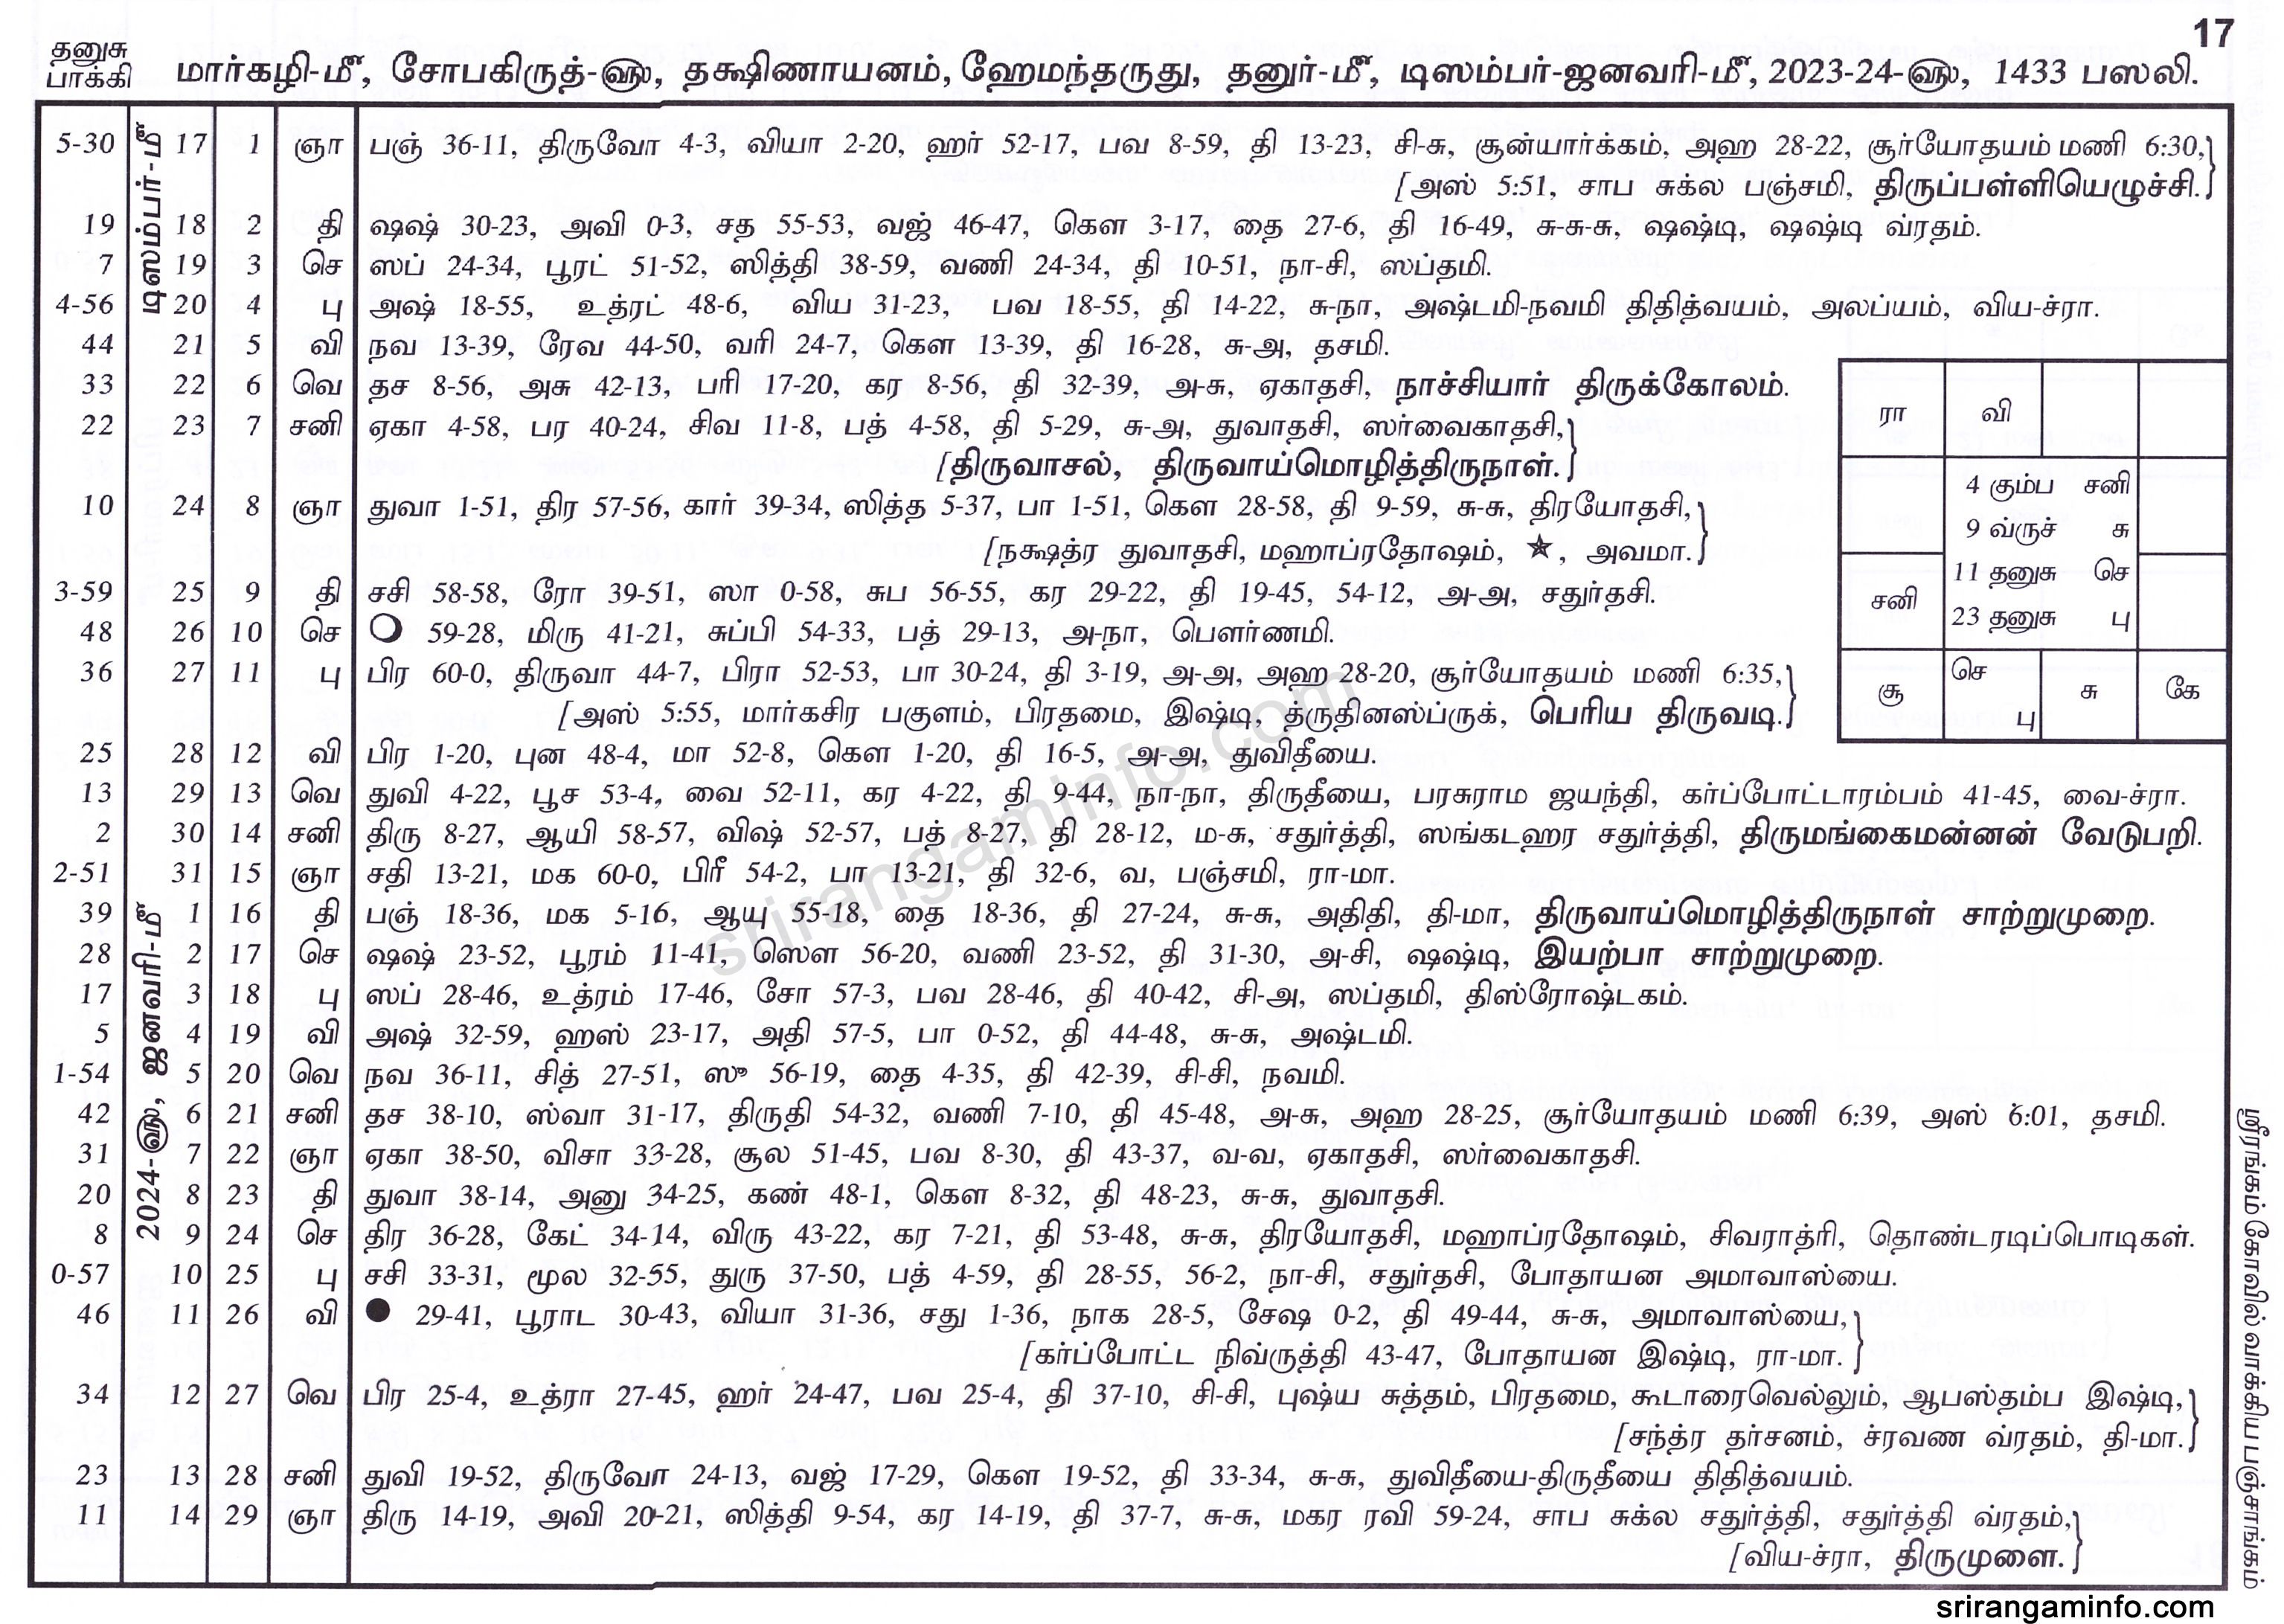 17
தனுசு
பாக்கி
மார்கழி-மீ, சோபகிருத்-௵, தக்ஷிணாயனம், ஹேமந்தருது, தனுர்-மீ, டிஸம்பர்-ஜனவரி-மீ, 2023-24-௵, 1433 பஸலி.
டிஸம்பர்-மீ
5-30 17 1 ஞா பஞ் 36-11, திருவோ 4-3, வியா 2-20, ஹர் 52-17, பவ 8-59, தி 13-23, சி-சு, சூன்யார்க்கம், அஹ 28-22, சூர்யோதயம் மணி 6:30,}
[அஸ் 5:51, சாப சுக்ல பஞ்சமி, திருப்பள்ளியெழுச்சி.
19 18 2 தி ஷஷ் 30-23, அவி 0-3, சத 55-53, வஜ் 46-47, கௌ 3-17, தை 27-6, தி 16-49, சு-சு-சு, ஷஷ்டி, ஷஷ்டி வ்ரதம்.
7 19 3 செ ஸப் 24-34, பூரட் 51-52, ஸித்தி 38-59, வணி 24-34, தி 10-51, நா-சி, ஸப்தமி.
4-56 20 4 பு அஷ் 18-55, உத்ரட் 48-6, விய 31-23, பவ 18-55, தி 14-22, சு-நா, அஷ்டமி-நவமி திதித்வயம், அலப்யம், விய-ச்ரா.
44 21 5 வி நவ 13-39, ரேவ 44-50, வரி 24-7, கௌ 13-39, தி 16-28, சு-அ, தசமி.
33 22 6 வெ தச 8-56, அசு 42-13, பரி 17-20, கர 8-56, தி 32-39, அ-சு, ஏகாதசி, நாச்சியார் திருக்கோலம்.
22 23 7 சனி ஏகா 4-58, பர 40-24, சிவ 11-8, பத் 4-58, தி 5-29, சு-அ, துவாதசி, ஸர்வைகாதசி,}
[திருவாசல், திருவாய்மொழித்திருநாள்.
10 24 8 ஞா துவா 1-51, திர 57-56, கார் 39-34, ஸித்த 5-37, பா 1-51, கௌ 28-58, தி 9-59, சு-சு, திரயோதசி,}
[நக்ஷத்ர துவாதசி, மஹாப்ரதோஷம், ★, அவமா.
3-59 25 9 தி சசி 58-58, ரோ 39-51, ஸா 0-58, சுப 56-55, கர 29-22, தி 19-45, 54-12, அ-அ, சதுர்தசி.
48 26 10 செ ○ 59-28, மிரு 41-21, சுப்பி 54-33, பத் 29-13, அ-நா, பௌர்ணமி.
36 27 11 பு பிர 60-0, திருவா 44-7, பிரா 52-53, பா 30-24, தி 3-19, அ-அ, அஹ 28-20, சூர்யோதயம் மணி 6:35,}
[அஸ் 5:55, மார்கசிர பகுளம், பிரதமை, இஷ்டி, த்ருதினஸ்ப்ருக், பெரிய திருவடி.
25 28 12 வி பிர 1-20, புன 48-4, மா 52-8, கௌ 1-20, தி 16-5, அ-அ, துவிதீயை.
13 29 13 வெ துவி 4-22, பூச 53-4, வை 52-11, கர 4-22, தி 9-44, நா-நா, திருதீயை, பரசுராம ஜயந்தி, கர்ப்போட்டாரம்பம் 41-45, வை-ச்ரா.
2 30 14 சனி திரு 8-27, ஆயி 58-57, விஷ் 52-57, பத் 8-27, தி 28-12, ம-சு, சதுர்த்தி, ஸங்கடஹர சதுர்த்தி, திருமங்கைமன்னன் வேடுபறி.
2-51 31 15 ஞா சதி 13-21, மக 60-0, பிரீ 54-2, பா 13-21, தி 32-6, வ, பஞ்சமி, ரா-மா.
2024-௵, ஜனவரி-மீ
39 1 16 தி பஞ் 18-36, மக 5-16, ஆயு 55-18, தை 18-36, தி 27-24, சு-சு, அதிதி, தி-மா, திருவாய்மொழித்திருநாள் சாற்றுமுறை.
28 2 17 செ ஷஷ் 23-52, பூரம் 11-41, ஸௌ 56-20, வணி 23-52, தி 31-30, அ-சி, ஷஷ்டி, இயற்பா சாற்றுமுறை.
17 3 18 பு ஸப் 28-46, உத்ரம் 17-46, சோ 57-3, பவ 28-46, தி 40-42, சி-அ, ஸப்தமி, திஸ்ரோஷ்டகம்.
5 4 19 வி அஷ் 32-59, ஹஸ் 23-17, அதி 57-5, பா 0-52, தி 44-48, சு-சு, அஷ்டமி.
1-54 5 20 வெ நவ 36-11, சித் 27-51, ஸு 56-19, தை 4-35, தி 42-39, சி-சி, நவமி.
42 6 21 சனி தச 38-10, ஸ்வா 31-17, திருதி 54-32, வணி 7-10, தி 45-48, அ-சு, அஹ 28-25, சூர்யோதயம் மணி 6:39, அஸ் 6:01, தசமி.
31 7 22 ஞா ஏகா 38-50, விசா 33-28, சூல 51-45, பவ 8-30, தி 43-37, வ-வ, ஏகாதசி, ஸர்வைகாதசி.
20 8 23 தி துவா 38-14, அனு 34-25, கண் 48-1, கௌ 8-32, தி 48-23, சு-சு, துவாதசி.
8 9 24 செ திர 36-28, கேட் 34-14, விரு 43-22, கர 7-21, தி 53-48, சு-சு, திரயோதசி, மஹாப்ரதோஷம், சிவராத்ரி, தொண்டரடிப்பொடிகள்.
0-57 10 25 பு சசி 33-31, மூல 32-55, துரு 37-50, பத் 4-59, தி 28-55, 56-2, நா-சி, சதுர்தசி, போதாயன அமாவாஸ்யை.
46 11 26 வி ● 29-41, பூராட 30-43, வியா 31-36, சது 1-36, நாக 28-5, சேஷ 0-2, தி 49-44, சு-சு, அமாவாஸ்யை,}
[கர்ப்போட்ட நிவ்ருத்தி 43-47, போதாயன இஷ்டி, ரா-மா.
34 12 27 வெ பிர 25-4, உத்ரா 27-45, ஹர் 24-47, பவ 25-4, தி 37-10, சி-சி, புஷ்ய சுத்தம், பிரதமை, கூடாரைவெல்லும், ஆபஸ்தம்ப இஷ்டி,}
[சந்த்ர தர்சனம், ச்ரவண வ்ரதம், தி-மா.
23 13 28 சனி துவி 19-52, திருவோ 24-13, வஜ் 17-29, கௌ 19-52, தி 33-34, சு-சு, துவிதீயை-திருதீயை திதித்வயம்.
11 14 29 ஞா திரு 14-19, அவி 20-21, ஸித்தி 9-54, கர 14-19, தி 37-7, சு-சு, மகர ரவி 59-24, சாப சுக்ல சதுர்த்தி, சதுர்த்தி வ்ரதம்,}
[விய-ச்ரா, திருமுளை.
ரா வி
4 கும்ப சனி
9 வ்ருச் சு
11 தனுசு செ
சனி
23 தனுசு பு
சூ செ பு சு கே
ஸ்ரீரங்கம் கோவில் வாக்கிய பஞ்சாங்கம்
srirangaminfo.com
srirangaminfo.com